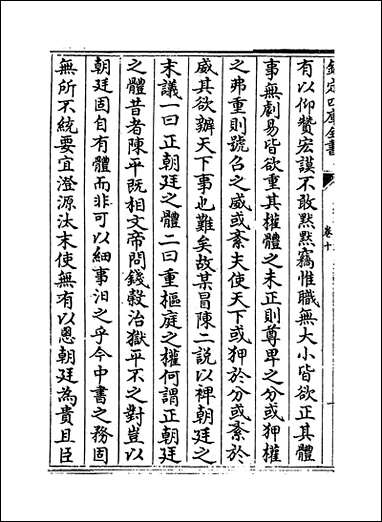 欽定四庫全書
卷十
有以仰贊宏謨不敢黙黙竊惟職無大小皆欲正其體
事無劇易皆欲重其權體之未正則尊卑之分或狎權
之弗重則號令之威或紊夫使天下或狎於分或紊於
威其欲辦天下事也難矣故某冒陳二説以裨朝廷之
末議一曰正朝廷之體二曰重樞庭之權何謂正朝廷
之體昔者陳平既相文帝問錢穀治獄平不之對豈以
朝廷固自有體而非可以細事汨之乎今中書之務固
無所不統要宜澄源汰末使無有以恩朝廷為貴且臣